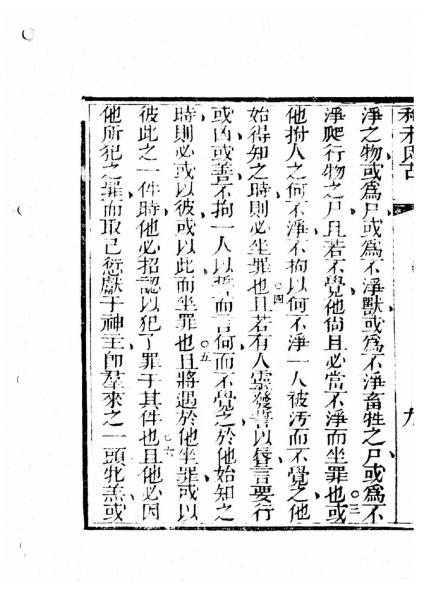 利未氏古
九
淨之物或爲尸或爲不淨獸或爲不淨畜牲之尸或爲不
淨爬行物之尸且若不覺他尙且必當不淨而坐罪也或○三
他拊人之何不淨不拘以何不淨一人被汚而不覺之他
始得知之時則必坐罪也○四且若有人發誓以唇言要行
或凶或善不拘一人以誓而言何而不覺之於他始知之
時則必或以彼或以此而坐罪也○五且將遇於他坐罪或以
彼此之一件時他必招認以犯了罪于其件也○六且他必因
他所犯之罪而取己愆獻于神主卽羣來之一頭牝羔或